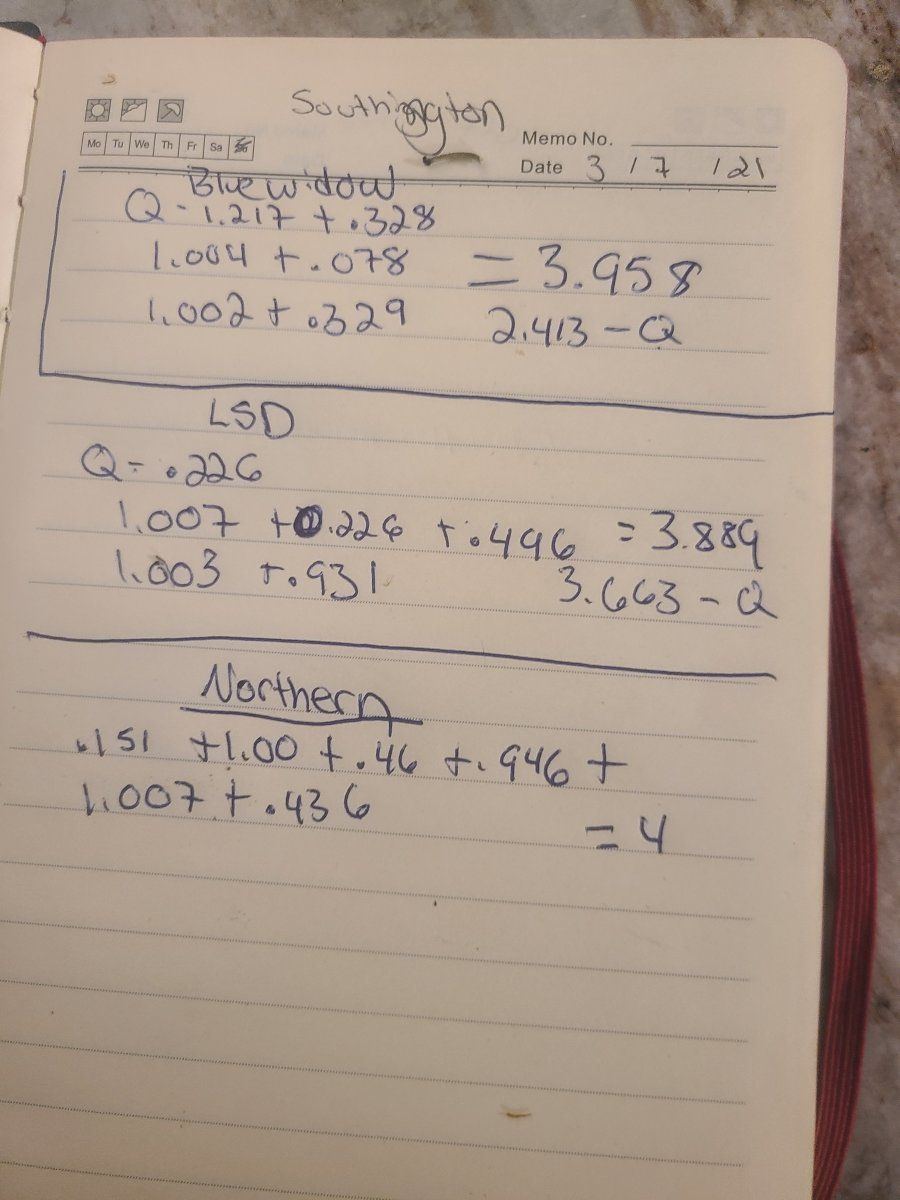 Southington
Mo Tu We Th Fr Sa
Memo No.
Date 3 / 7 / 21
Blue widow
Q - 1.217 + .328
1.004 + .078 = 3.958
1.002 + .329 2.413 - Q
LSD
Q - .226
1.007 + .226 + .496 = 3.889
1.003 + .931 3.663 - Q
Northern
.151 + 1.00 + .46 + .946 +
1.007 + .436
= 4